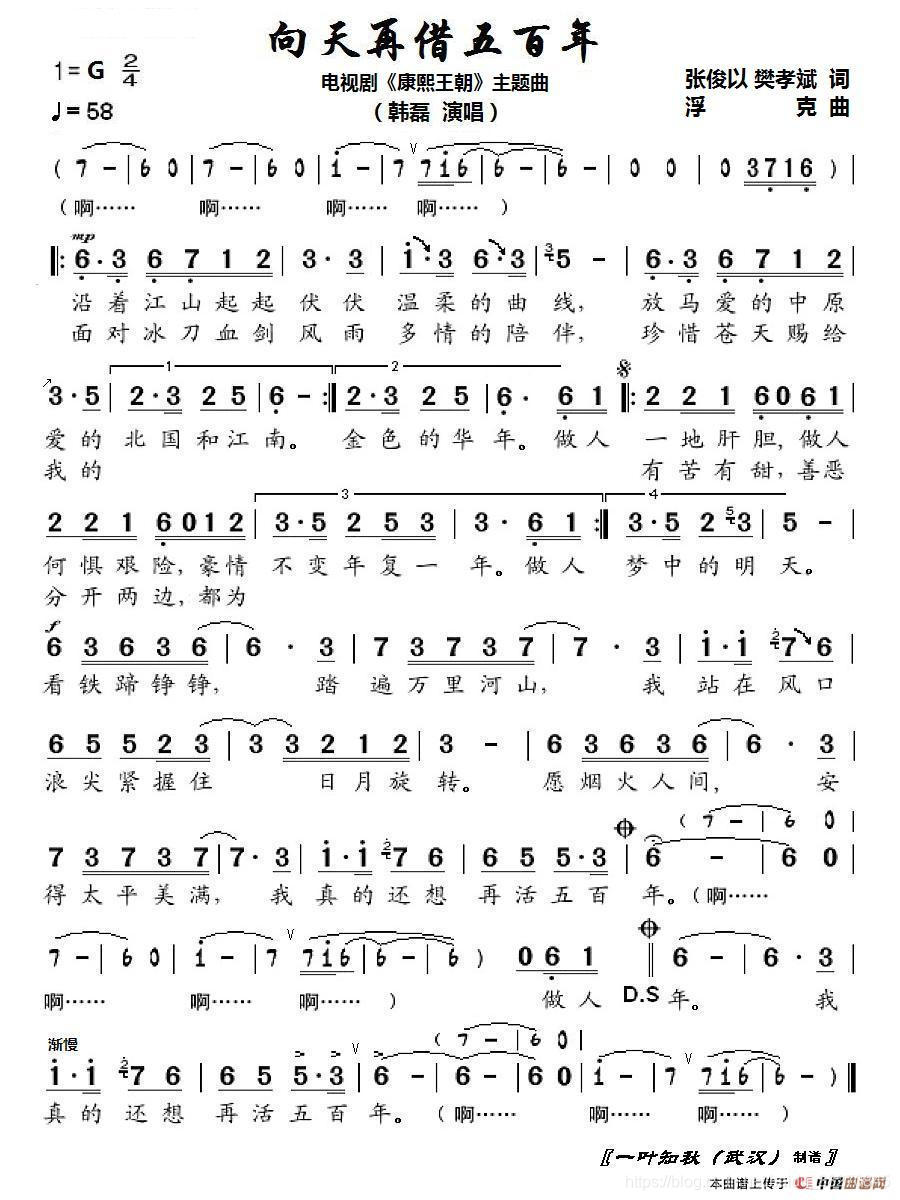 向天再借五百年
1=G 2/4
电视剧《康熙王朝》主题曲
张俊以 樊孝斌 词
♩=58
（韩磊 演唱）
浮 克 曲
( 7 - | 6 0 | 7 - | 6 0 | i - | 7 7i6 | 6 - | 6 - | 0 0 | 0 3716 ) |
（啊…… 啊…… 啊…… 啊……）
mp
|: 6·3 6712 | 3·3 | i·3 6·3 | 5 - | 6·3 6712 |
沿着江山起起伏伏温柔的曲线，放马爱的中原
面对冰刀血剑风雨多情的陪伴，珍惜苍天赐给
1 2
3·5 | 2·3 25 | 6 - :| 2·3 25 | 6· 61 |: 221 6061 |
爱的北国和江南。金色的华年。做人一地肝胆，做人
我的 有苦有甜，善恶
3 4
221 6012 | 3·5 253 | 3· 61 :| 3·5 2 3 | 5 - |
何惧艰险，豪情不变年复一年。做人梦中的明天。
分开两边，都为
f
6 3636 | 6· 3 | 7 3737 | 7· 3 | i·i 76 |
看铁蹄铮铮，踏遍万里河山，我站在风口
65 523 | 3 3212 | 3 - | 6 3636 | 6· 3 |
浪尖紧握住日月旋转。愿烟火人间，安
( 7 - | 6 0 |
7 3737 | 7· 3 | i·i 76 | 65 5·3 | 6 - | 6 0 |
得太平美满，我真的还想再活五百年。（啊……
7 - | 6 0 | i - | 7 7i6 | 6 - | 6 ) 061 || 6 - | 6· 3 |
啊…… 啊…… 啊……） 做人 D.S 年。 我
渐慢
( 7 - | 6 0 |
i·i 76 | 65 5·3 | 6 - | 6 - | 6 0 | i - | 7 7i6 | 6 - ) ||
真的还想再活五百年。（啊…… 啊…… 啊……）
〖一叶知秋（武汉）制谱〗
本曲谱上传于 中国曲谱网